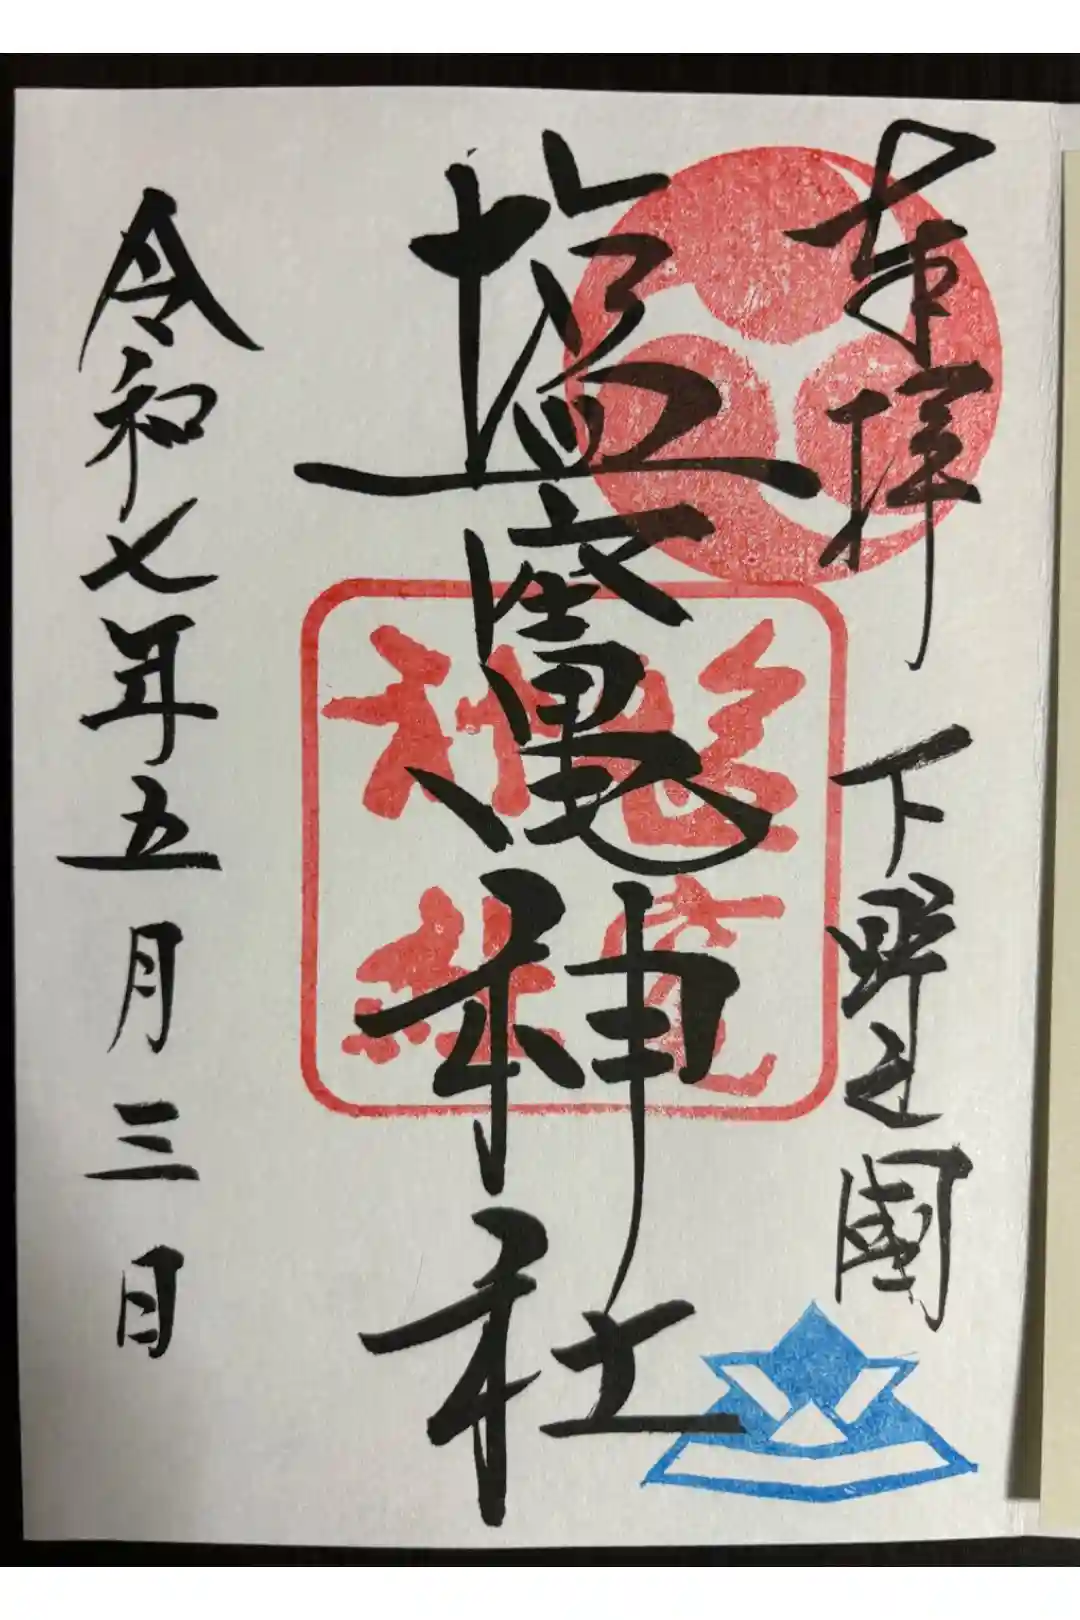 奉拝 下野之國
塩竈神社
令和七年五月三日